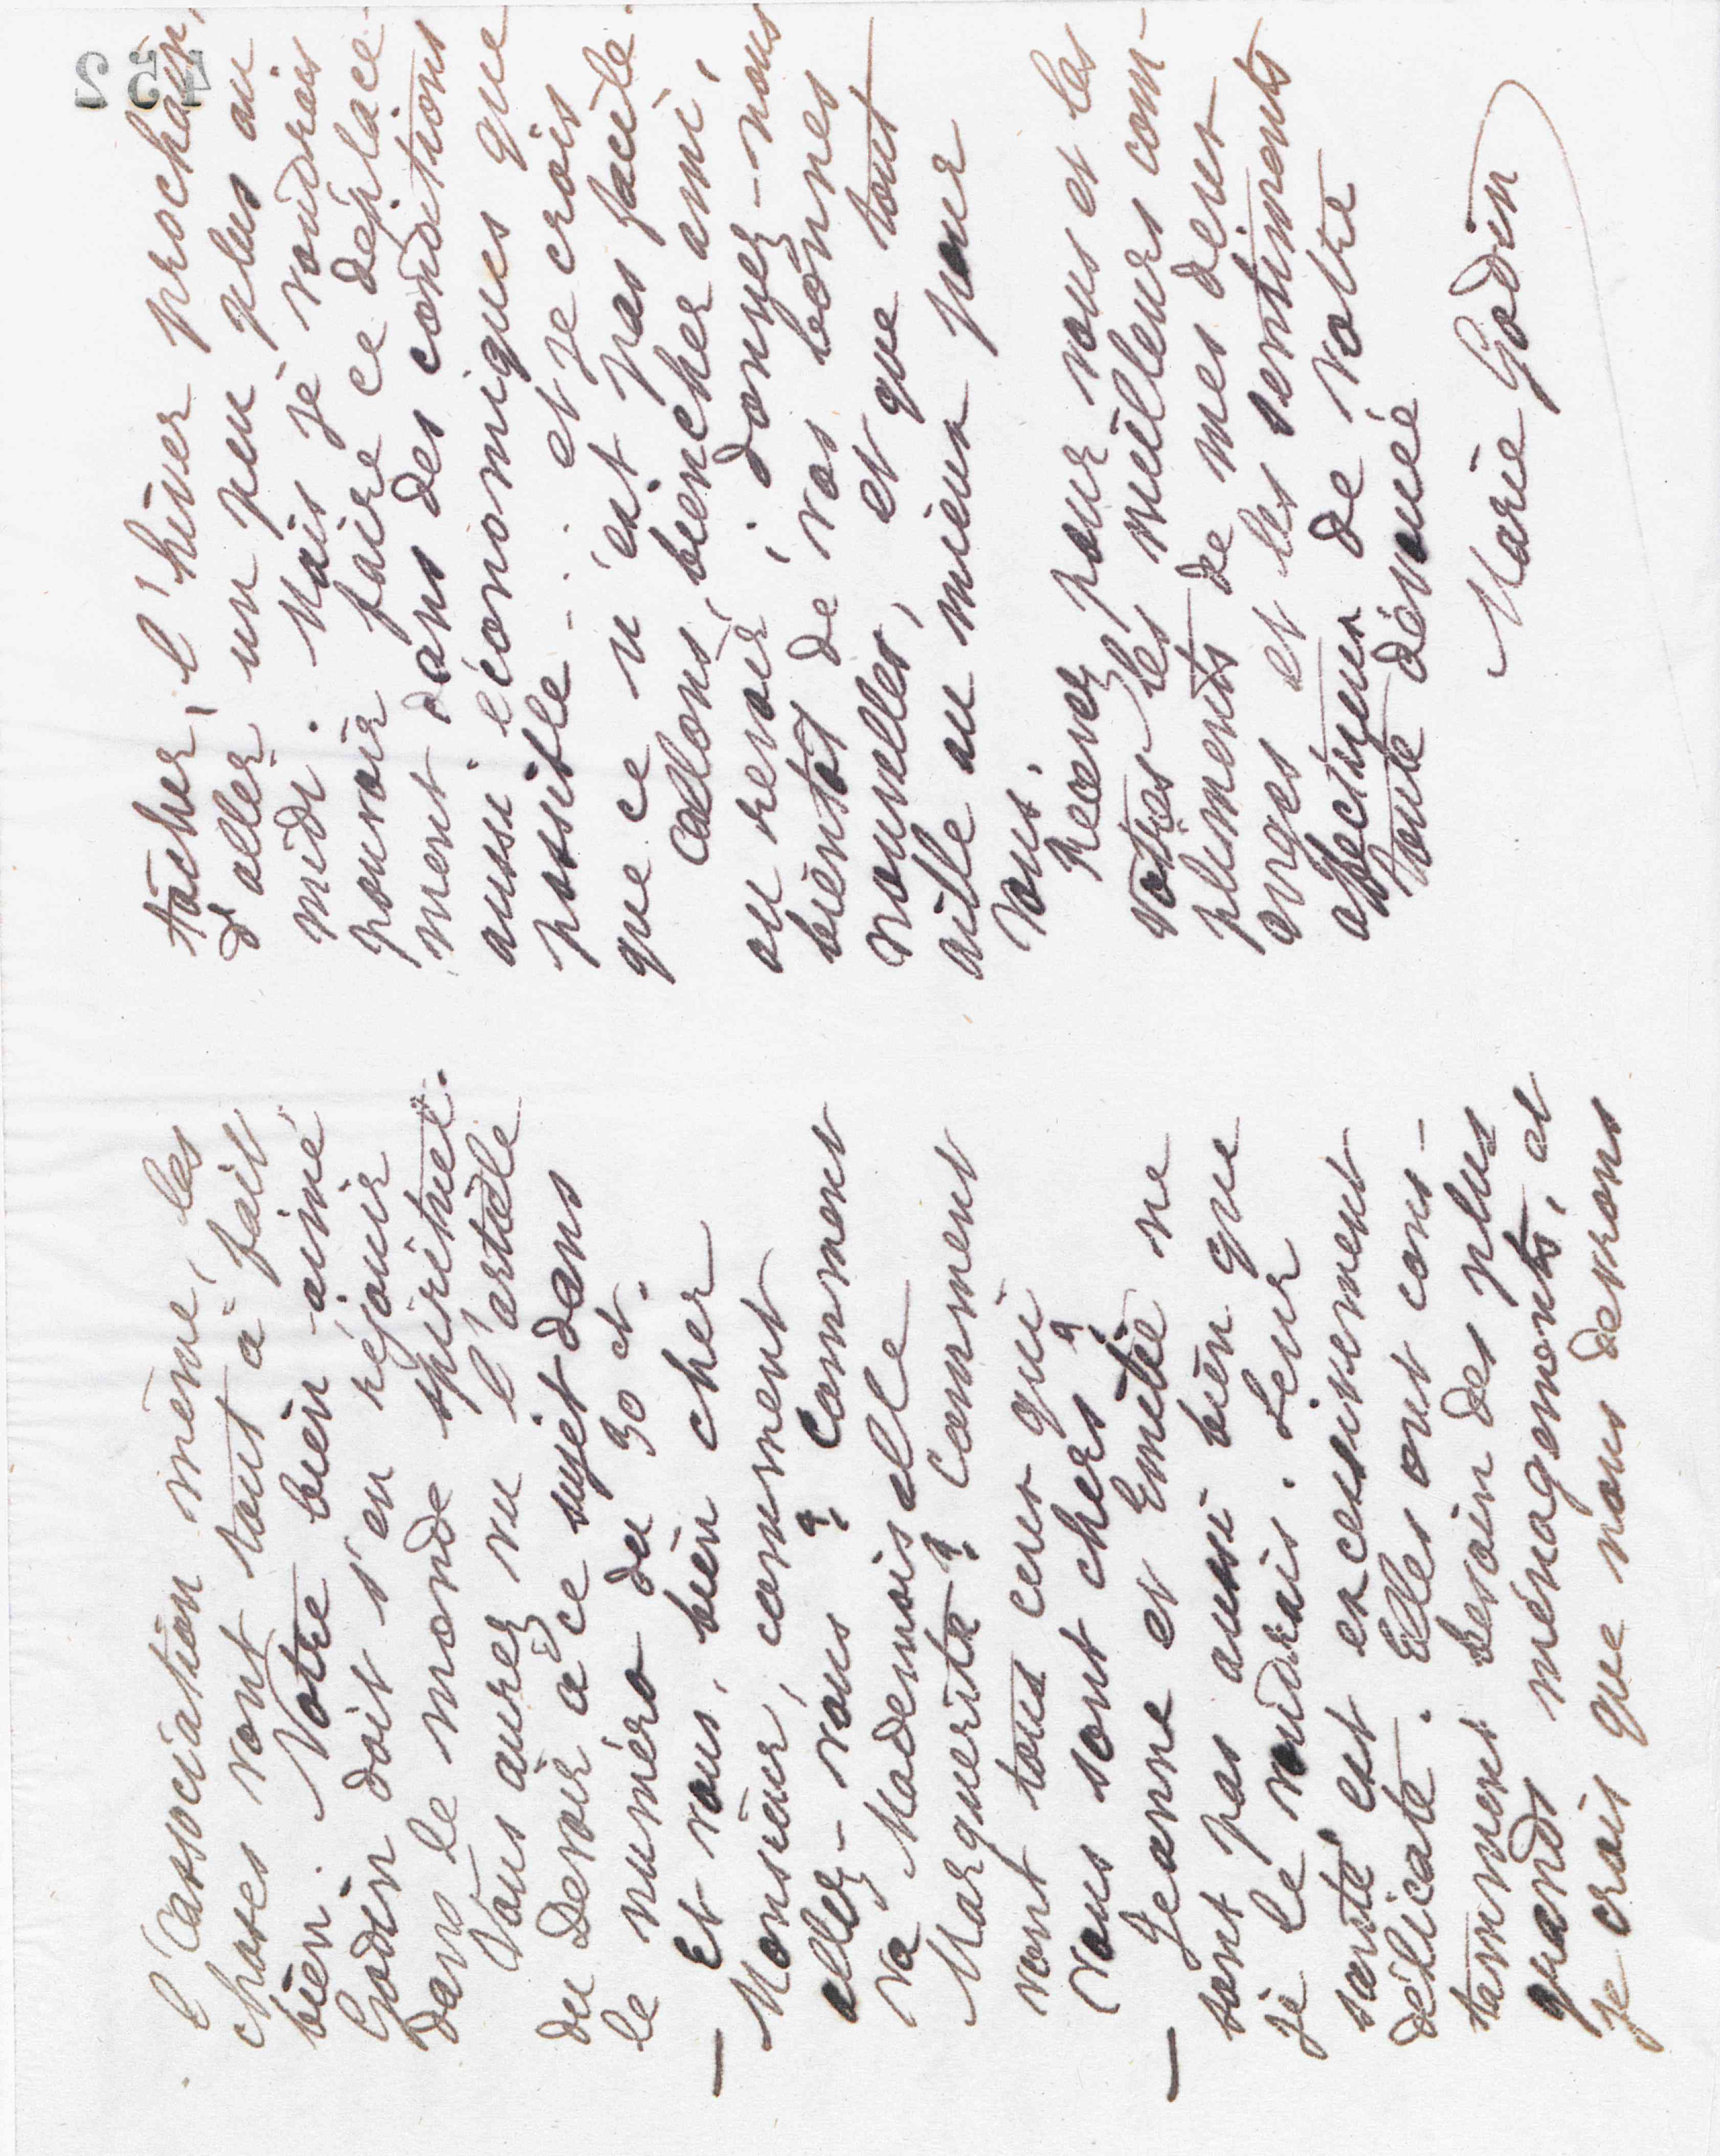 l'association même, les
choses vont tout à fait
bien. Votre bien-aimé
Godin doit s'en réjouir
dans le monde spirituel.
Vous aurez vu l'article
du Devoir à ce sujet dans
le numéro du 30 ct.
— Et vous, bien cher
Monsieur, comment
allez-vous ? Comment
va Mademoiselle
Marguerite ? Comment
vont tous ceux qui
vous sont chers ?
— Jeanne et Emilie ne
sont pas aussi bien que
je le voudrais. Leur
santé est excessivement
délicate. Elles ont cons-
tamment besoin des plus
grands ménagements, et
je crois que nous devrons
tâcher, l'hiver prochain,
d'aller un peu plus au
midi. Mais je voudrais
pouvoir faire ce déplace-
ment dans des conditions
aussi économiques que
possible... et je crois
que ce n'est pas facile.
Allons, bien cher ami,
au revoir ; donnez-nous
bientôt de vos bonnes
nouvelles, et que tout
aille au mieux pour
vous.
Recevez pour vous et les
vôtres les meilleurs com-
pliments de mes deux
anges et les sentiments
affectueux de votre
toute dévouée
Marie Godin
452